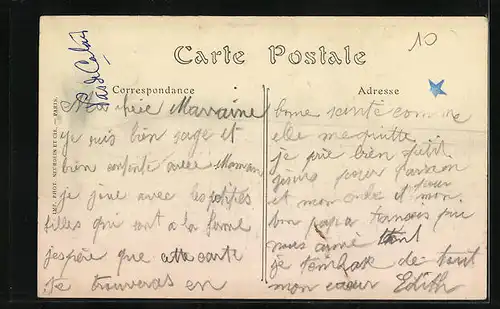 Carte Postale
10
Pas de Calais
Correspondance
Adresse
IMP. PHOT. NEURDEIN ET CIE. — PARIS
Marraine
je suis bien sage et
bien contente avec Maman
je joue avec les petites
filles qui sont a la ferme
j'espère que carte
te trouveras en
bonne santé comme
elle me quitte
je prie bien petit
jésus pour parrain
et mon oncle et pour mon
bon papa
nous aimé tant
je t'embrase de tout
mon cœur Edith